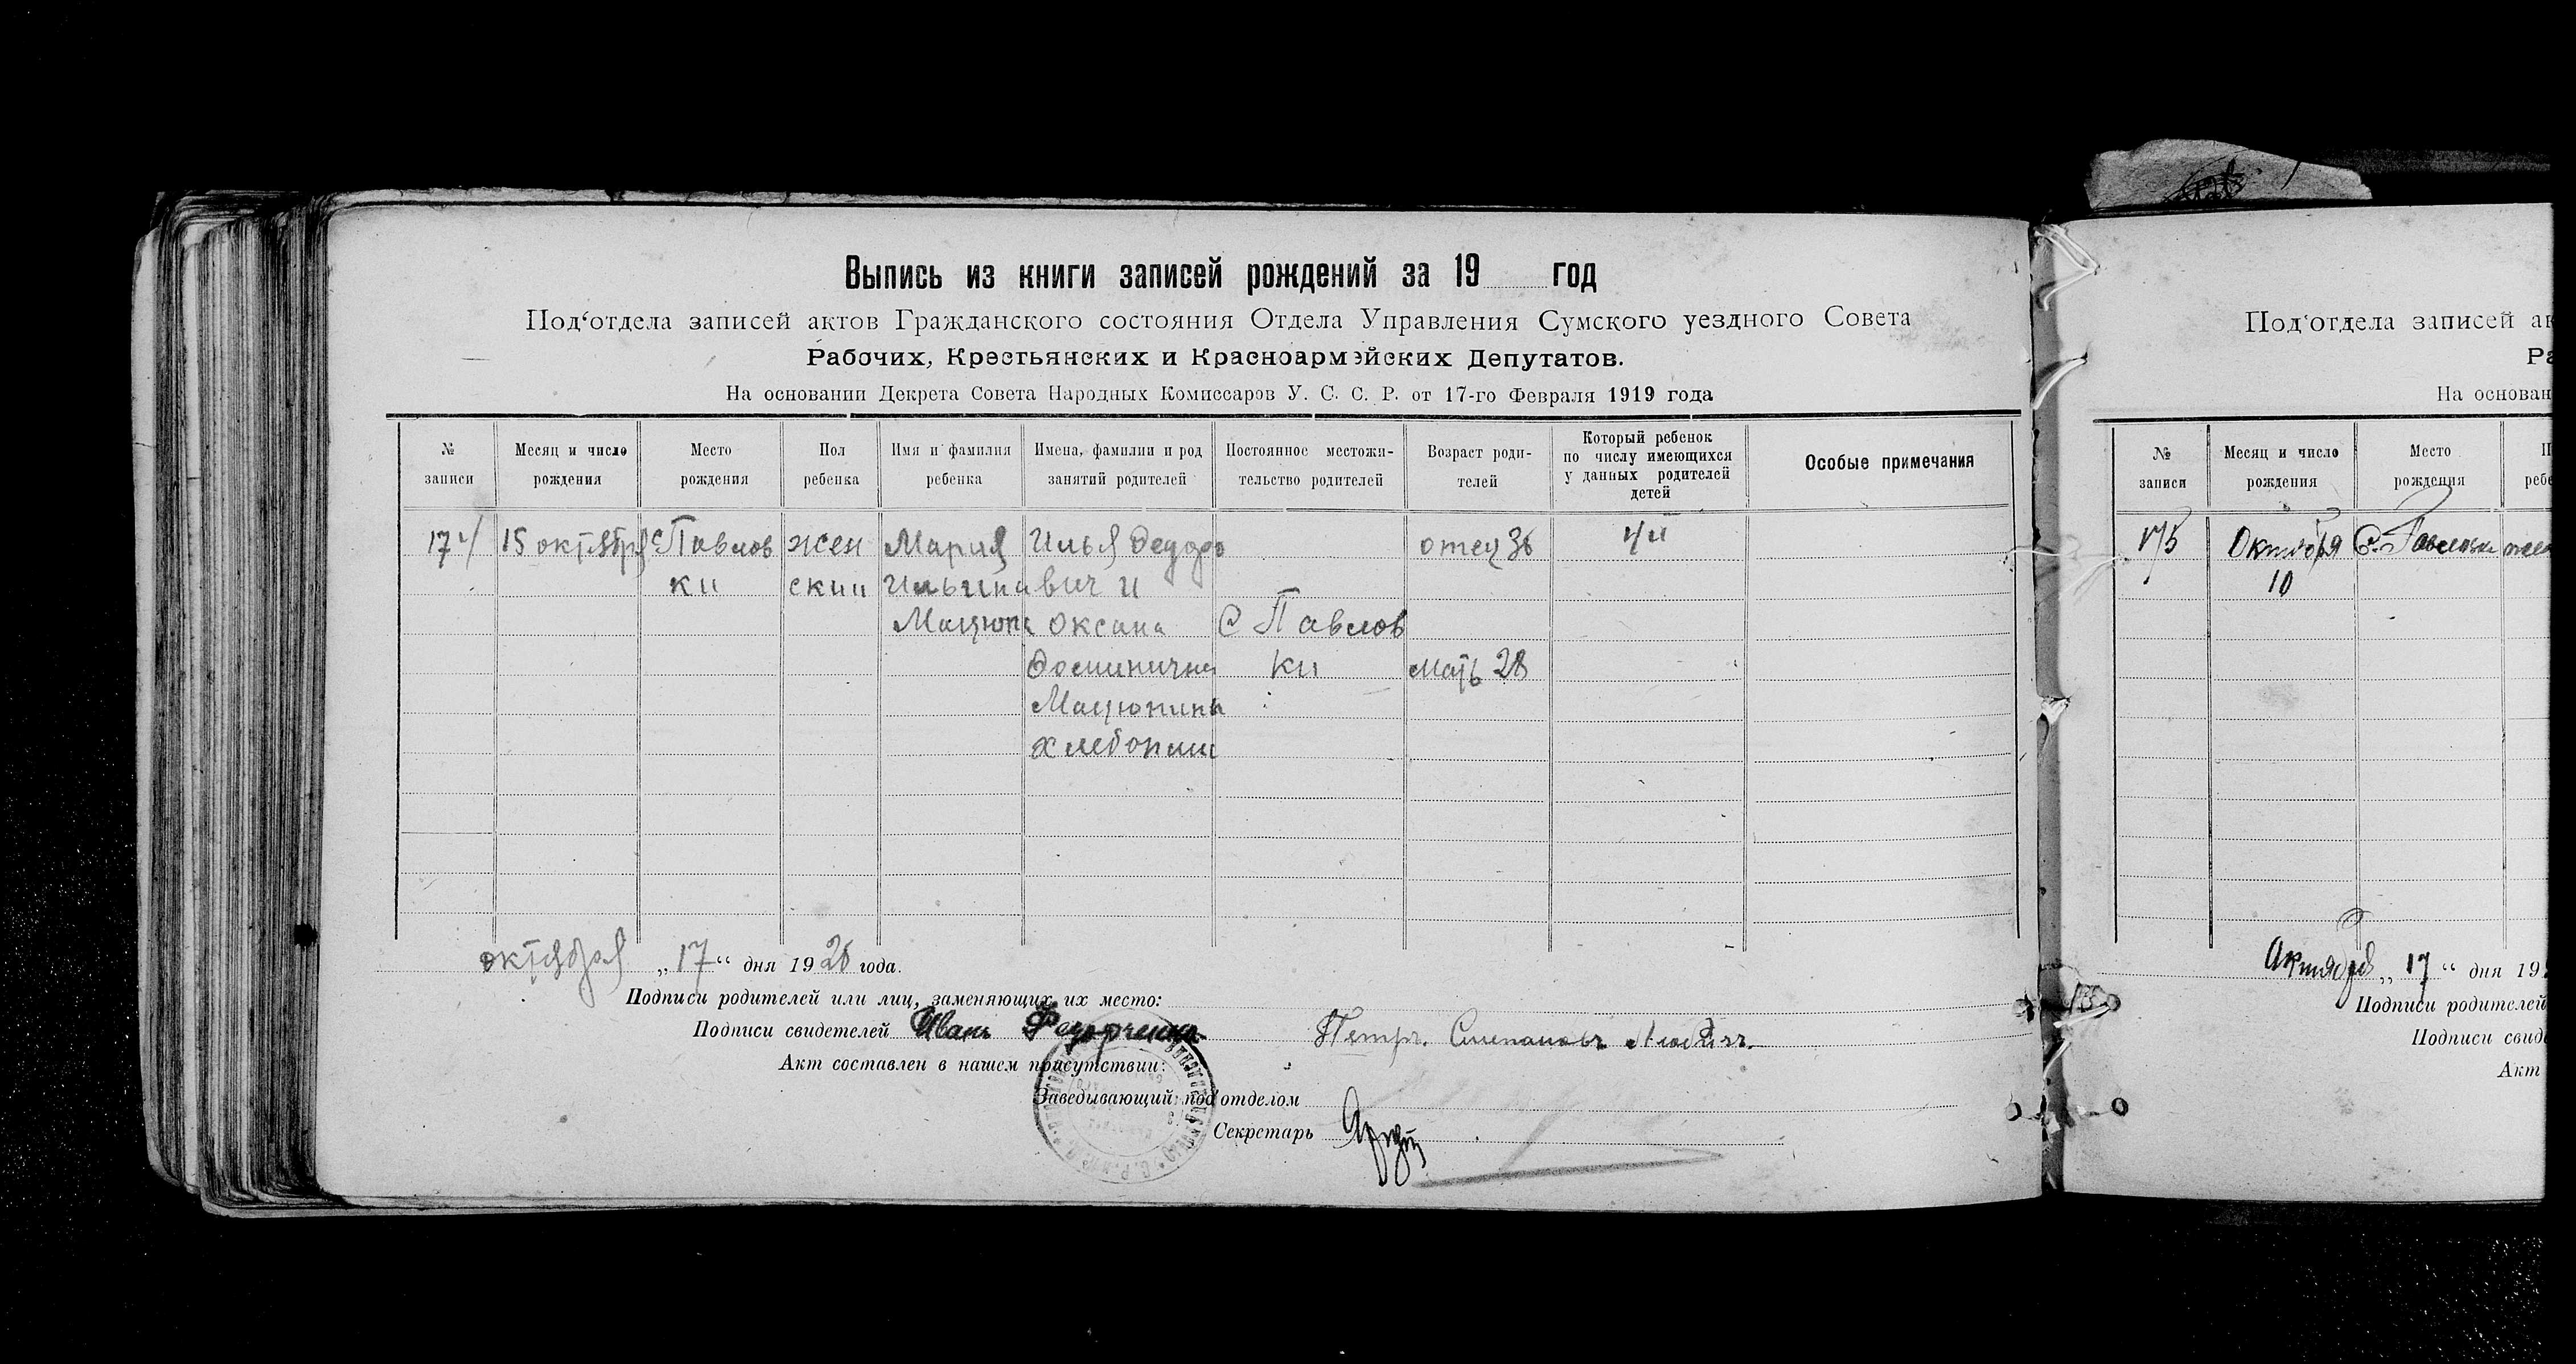 Выпись из книги записей рождений за 19 год
Под‘отдела записей актов Гражданского состояния Отдела Управления Сумского уездного Совета
Рабочих, Крестьянских и Красноармэйских Депутатов.
На основании Декрета Совета Народных Комиссаров У. С. С. Р. от 17-го Февраля 1919 года
№ записи
Месяц и число рождения
Место рождения
Пол ребенка
Имя и фамилия ребенка
Имена, фамилии и род занятий родителей
Постоянное местожи-
тельство родителей
Возраст роди-
телей
Который ребенок
по числу имеющихся
у данных родителей
детей
Особые примечания
174
15 октября
с Павлов
ки
жен
ский
Мария
Ильина
Мацюпа
Илья Федоро
вич и
Оксана
Мацюпины
С Павлов
ки
отец 36
мать 28
4й
октября „17“ дня 1920 года.
Подписи родителей или лиц, заменяющих их место:
Подписи свидетелей Иванъ Федорченко
Петръ Степановъ
Акт составлен в нашем присутствии:
Заведывающий под‘отделом
Секретарь
Под‘отдела записей ак
Ра
На основан
№ записи
Месяц и число рождения
Место рождения
П
ребе
175
Октября
10
с. Павловки
Октября „17“ дня 19
Подписи родителей
Подписи свиде
Акт